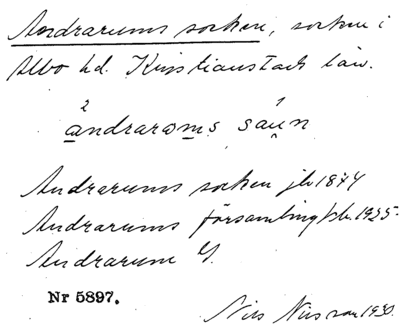 Andrarums socken, socken i
Albo hd. Kristianstads län.
andrarɷms sáu̯n
Andrarums socken jb 1874
Andrarums församling 1925.
Andrarum
Nr 5897.
Nils Nilsson 1930.